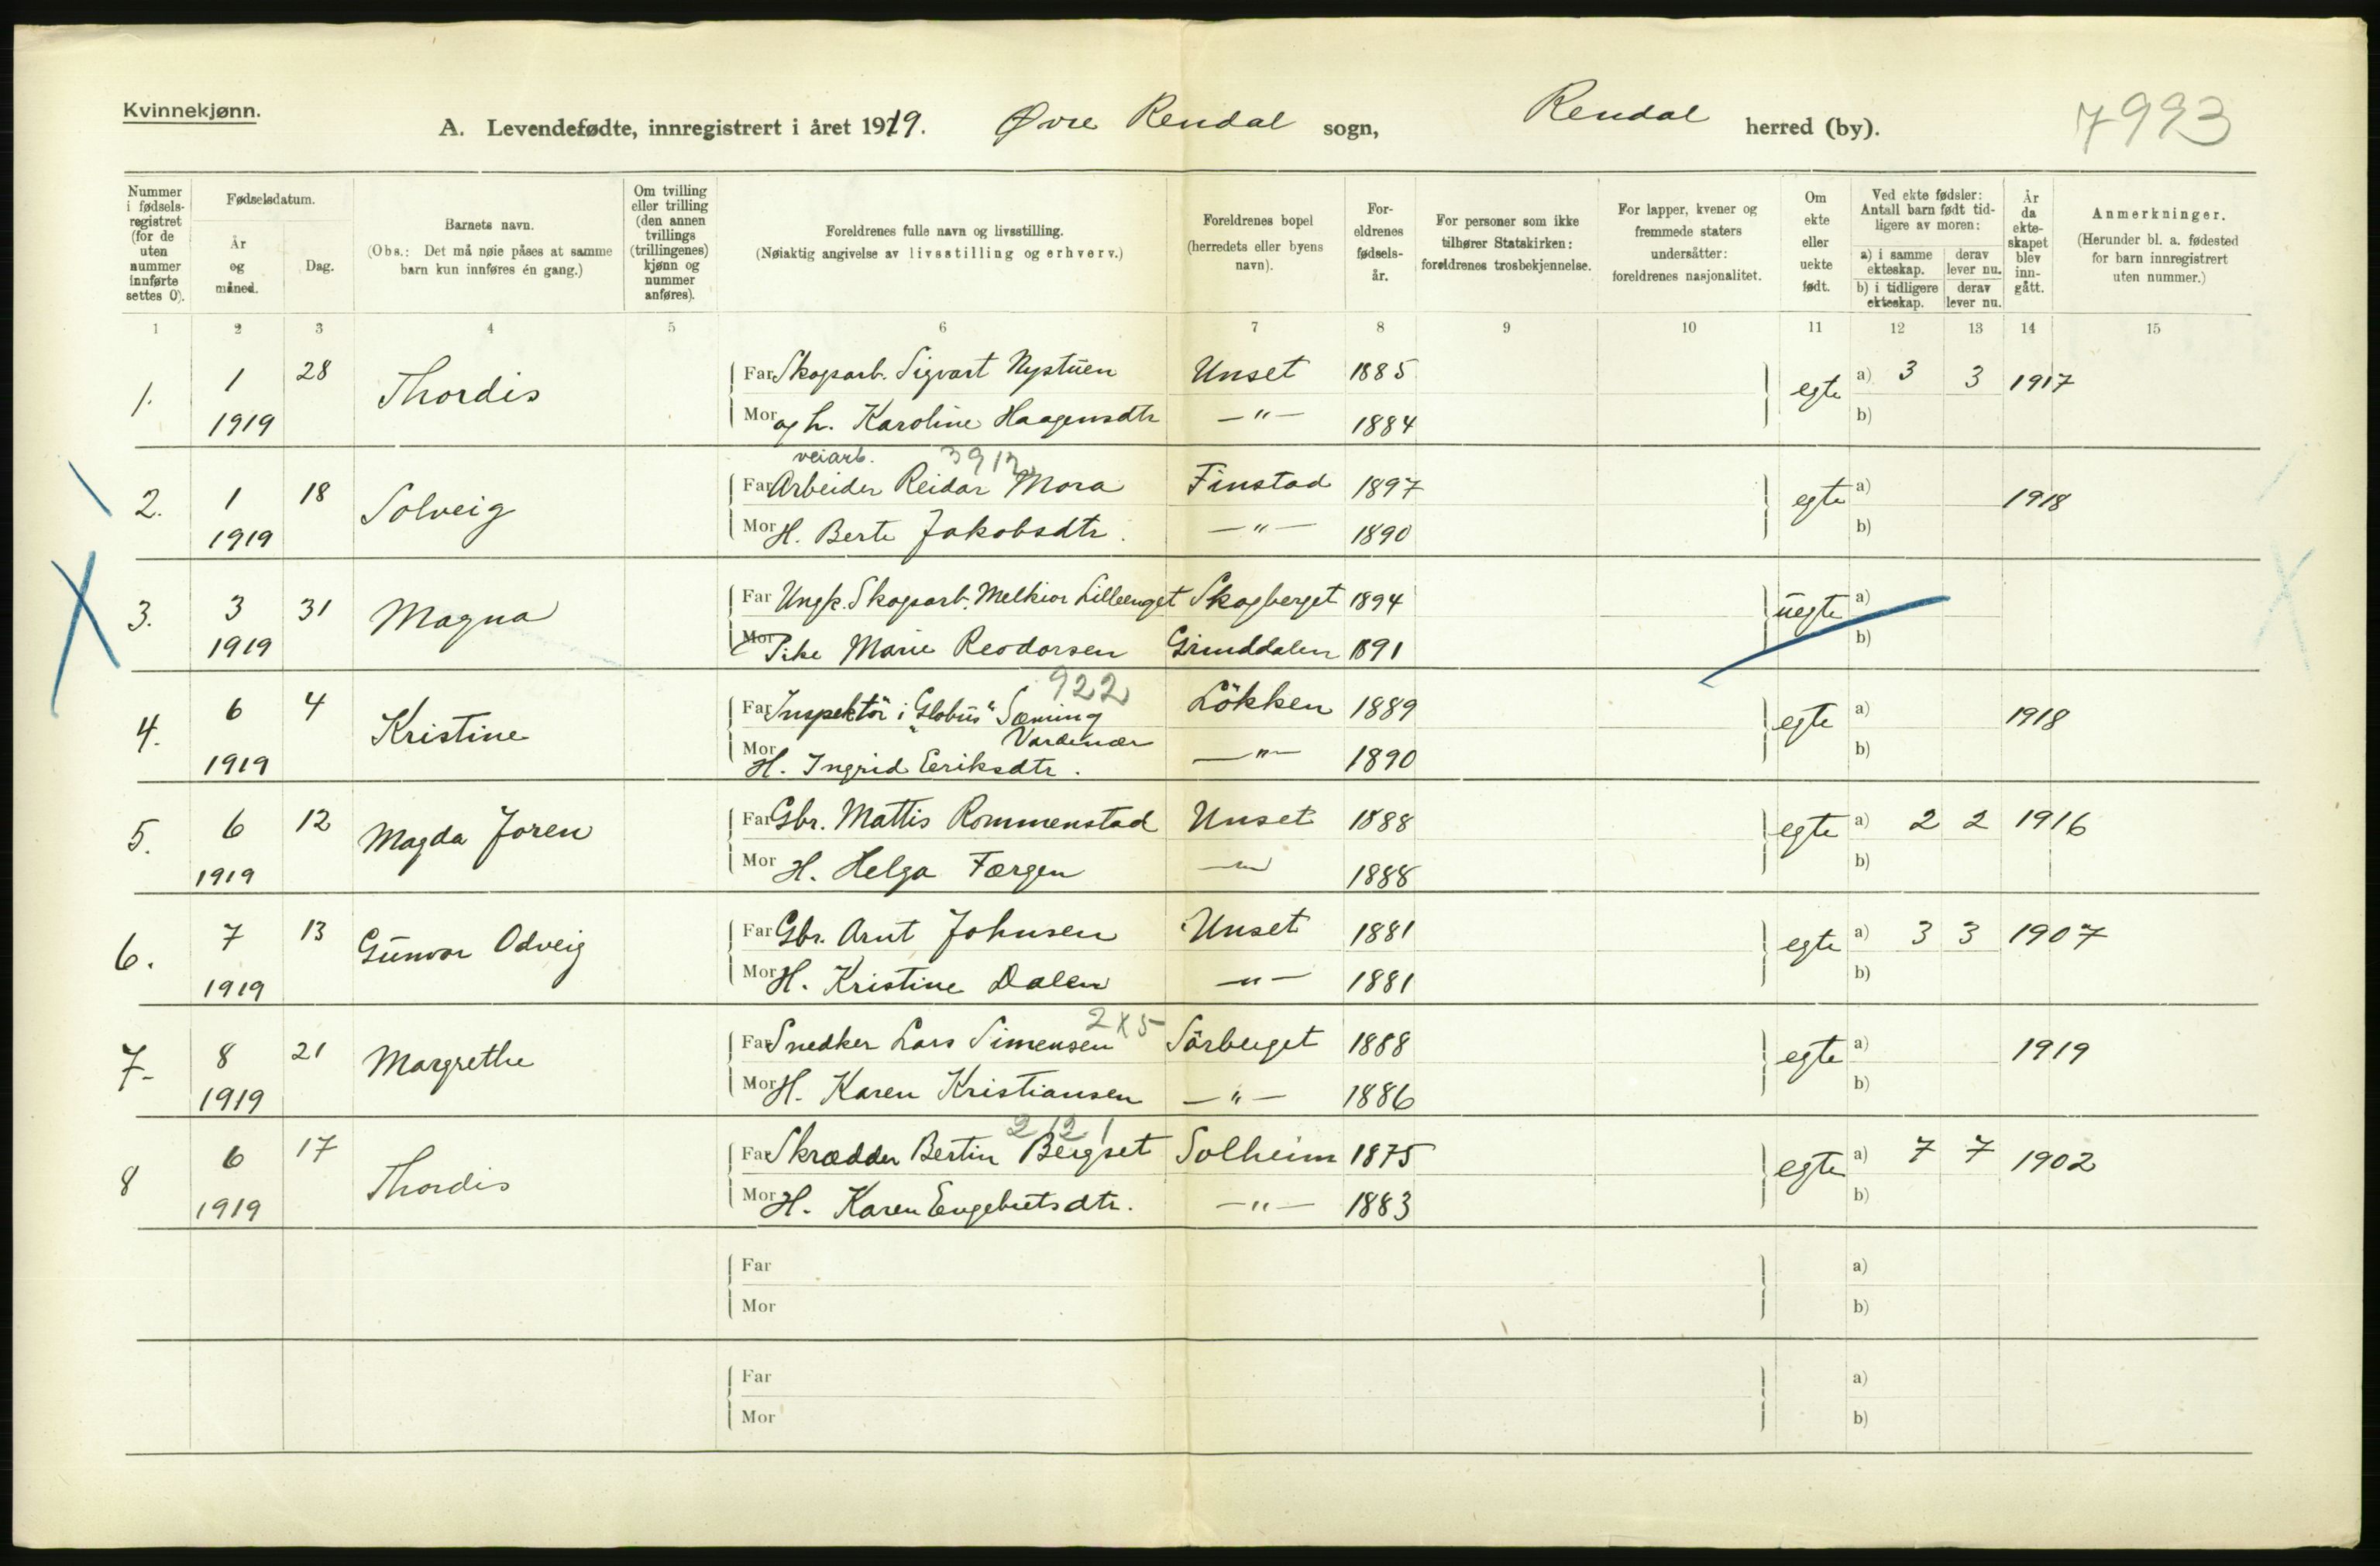 Kvinnekjønn.
A. Levendefødte, innregistrert i året 1919. Øvre Rendal sogn, Rendal herred (by). 7993
Nummer i fødsels- registret (for de uten nummer innførte settes 0).
Fødselsdatum.
År og måned.
Dag.
Barnets navn.
(Obs.: Det må nøie påses at samme barn kun innføres én gang.)
Om tvilling eller trilling (den annen tvillings (trillingenes) kjønn og nummer anføres).
Foreldrenes fulle navn og livsstilling.
(Nøiaktig angivelse av livsstilling og erhverv.)
Foreldrenes bopel (herredets eller byens navn).
For- eldrenes fødsels- år.
For personer som ikke tilhører Statskirken: foreldrenes trosbekjennelse.
For lapper, kvener og fremmede staters undersåtter: foreldrenes nasjonalitet.
Om ekte eller uekte født.
Ved ekte fødsler: Antall barn født tid- ligere av moren:
a) i samme ekteskap. derav lever nu.
b) i tidligere ekteskap. derav lever nu.
År da ekte- skapet blev inn- gått.
Anmerkninger.
(Herunder bl. a. fødested for barn innregistrert uten nummer.)
1 2 3 4 5 6 7 8 9 10 11 12 13 14 15
1. 1 28 Thordis Far Skogsarb. Sigvart Nystuen Unset 1885 egte a) 3 3 1917
1919 Mor og h. Karoline Haagensdtr —"— 1884 b)
veiarb. 3912
2. 1 18 Solveig Far Arbeider Reidar Mora Finstad 1897 egte a) 1918
1919 Mor H. Berte Jakobsdtr. —"— 1890 b)
3. 3 31 Magna Far Ungk. Skogsarb. Melkior Lilleenget Skogberget 1894 uegte a)
1919 Mor Pike Marie Reodorsen Grinddalen 1891 b)
922
4. 6 4 Kristine Far Inspektör i "Globus" Sæming Lökken 1889 egte a) 1918
Vardenær
1919 Mor H. Ingrid Eeriksdtr. —"— 1890 b)
5. 6 12 Magda Joren Far Gbr. Mattis Rommenstad Unset 1888 egte a) 2 2 1916
1919 Mor H. Helga Færgen —"— 1888 b)
6. 7 13 Gunvor Odveig Far Gbr. Arnt Johnsen Unset 1881 egte a) 3 3 1907
1919 Mor H. Kristine Dalen —"— 1881 b)
2x5
7. 8 21 Margrethe Far Snedker Lars Simensen Sörberget 1888 egte a) 1919
1919 Mor H. Karen Kristiansen —"— 1886 b)
2 12 1
8 6 17 Thordis Far Skrædder Bertin Bergset Solheim 1875 egte a) 7 7 1902
1919 Mor H. Karen Engebretsdtr. —"— 1883 b)
Far a)
Mor b)
Far a)
Mor b)